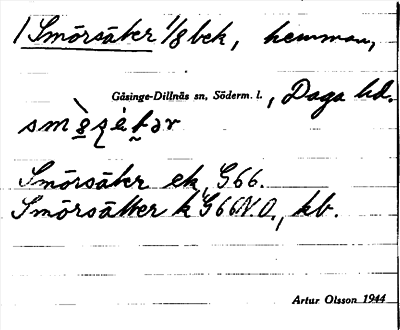 1 Smörsäker 1/8 bek, hemman,
Gåsinge-Dillnäs sn, Söderm. l., Daga hd.
Smörsäker ek, G66.
Smörsätter k G66 N.O., kb.
Artur Olsson 1944